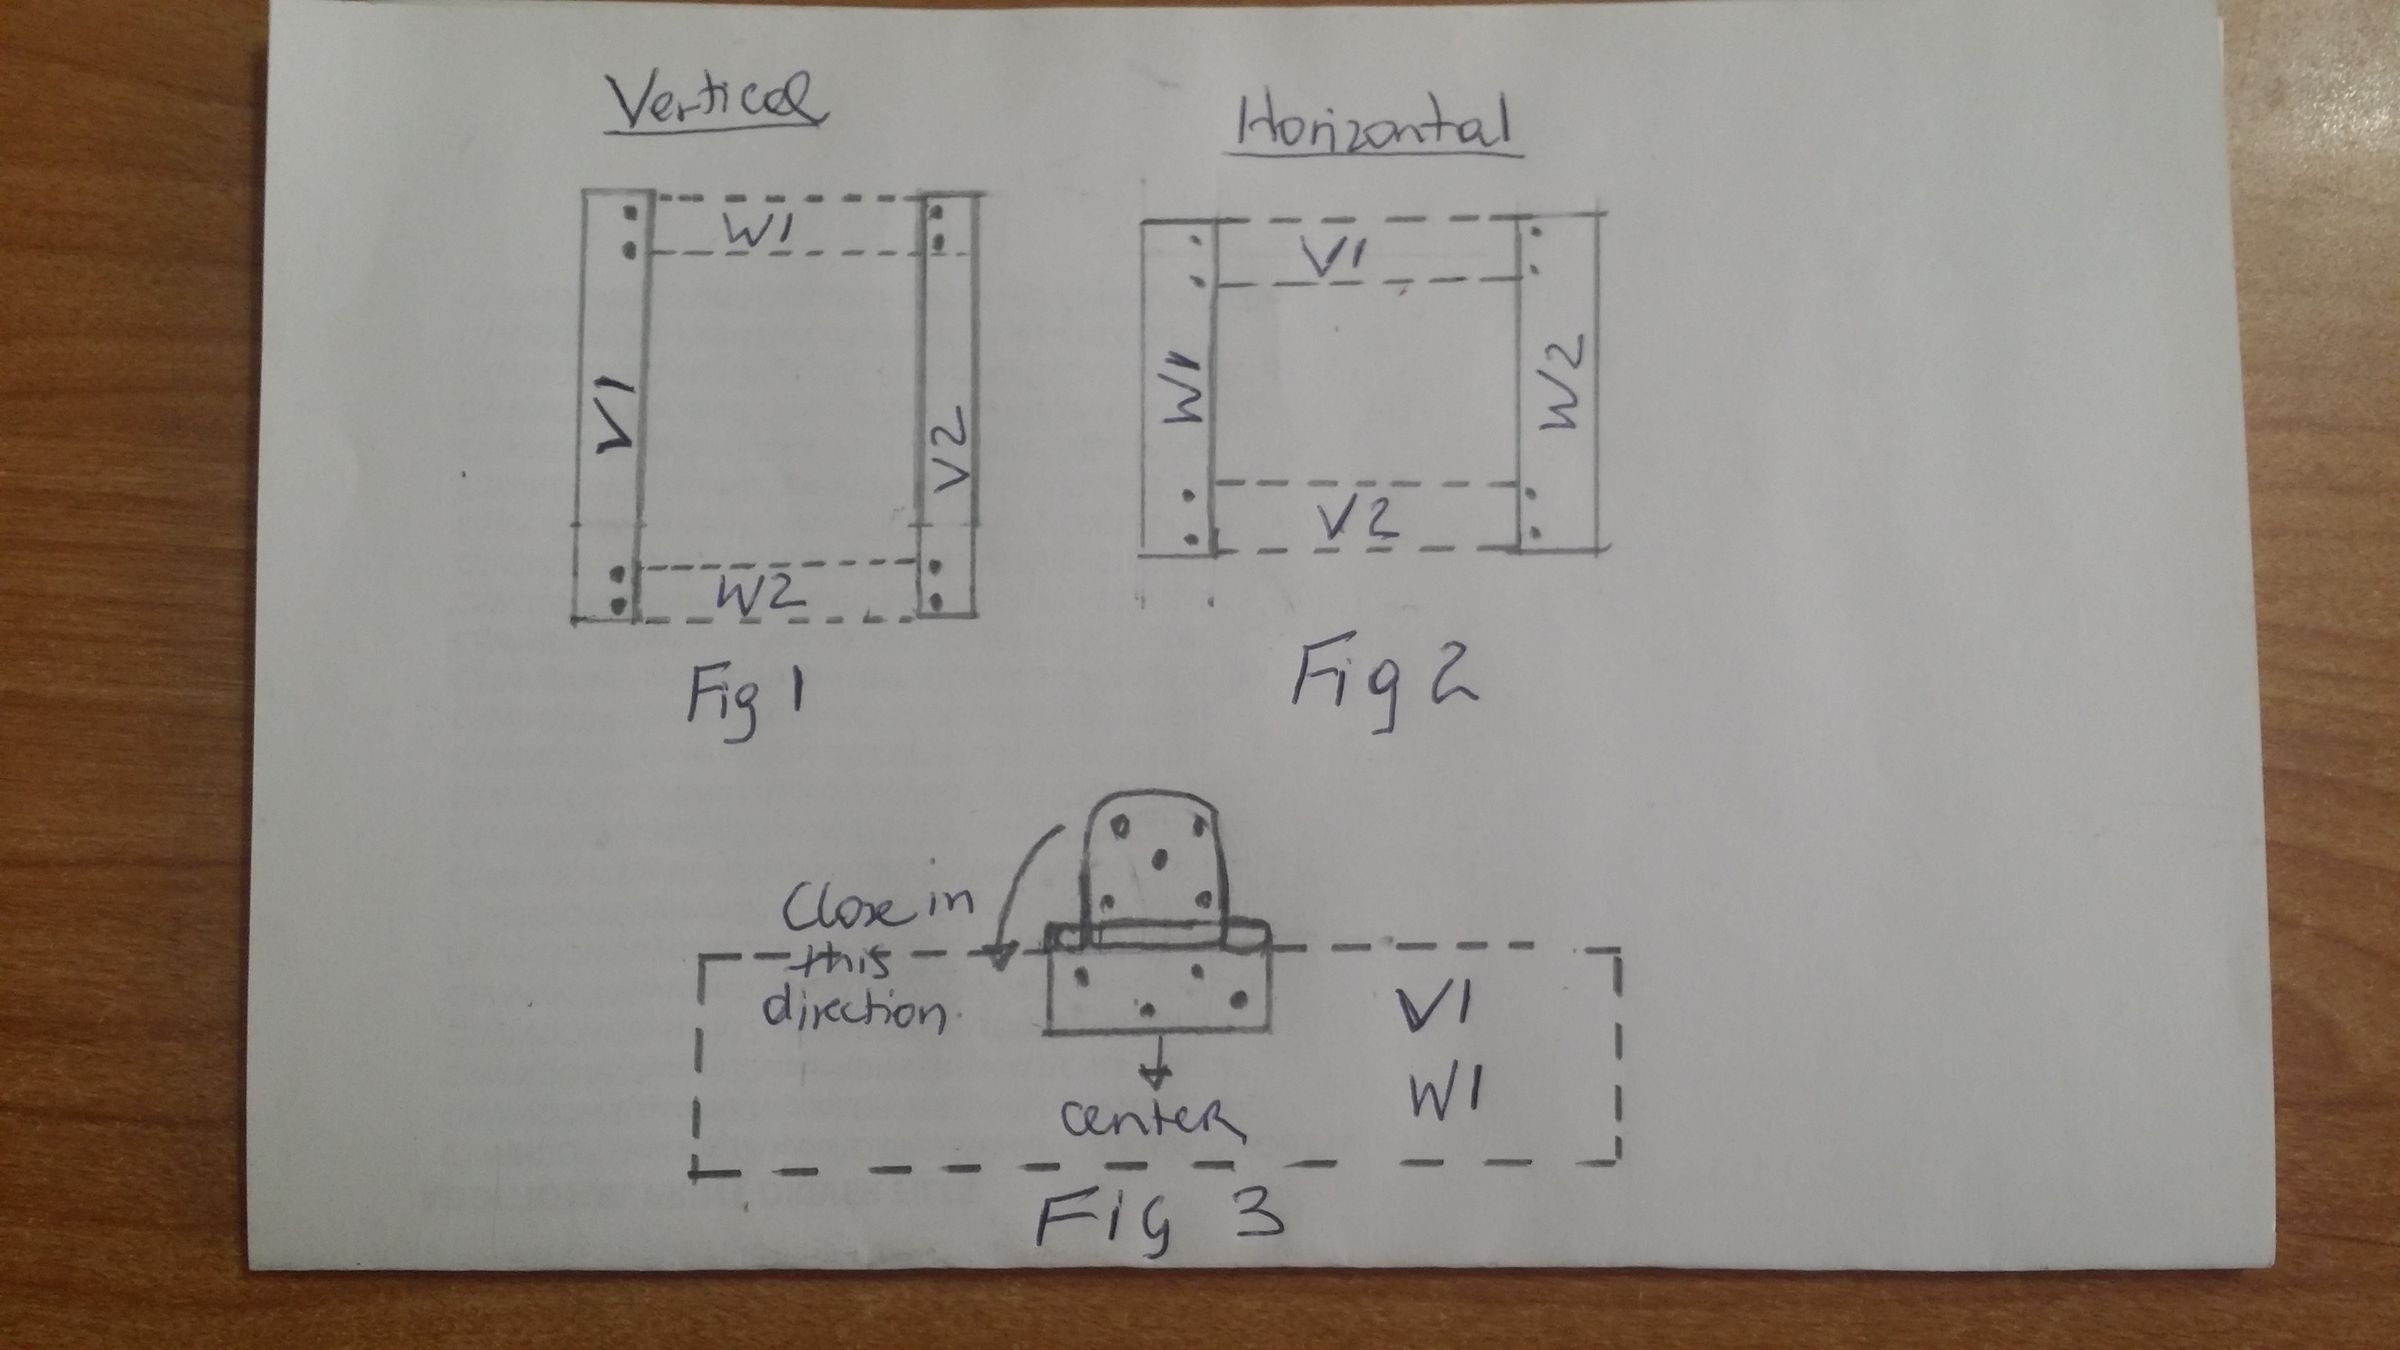 Vertical
W1
V1
V2
W2
Fig 1
Horizontal
V1
W1
W2
V2
Fig 2
Close in
this
direction.
V1
W1
center
Fig 3